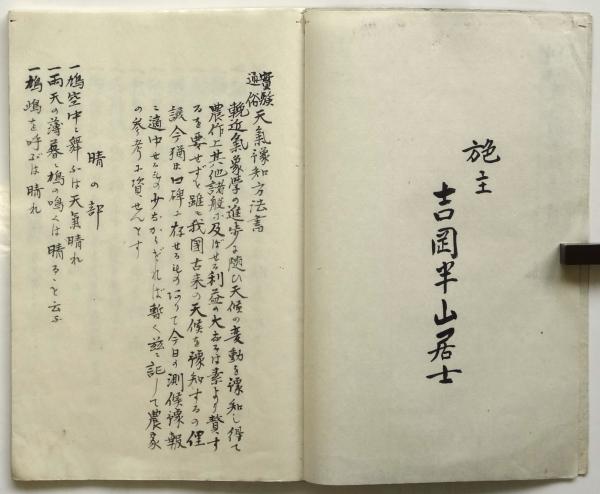 施主
吉岡半山居士
實験
通俗
天氣豫知方法書
輓近氣象学の進歩に随ひ天候の変動を豫知し得て
農作上其他諸般に及ぼせる利益の大なるは素より賛す
るを要せずと雖も我国古来の天候を豫知するの俚
諺今猶ほ口碑に存せるものありて今日の測候豫報
に適中せるもの少なからざれば暫く茲に記して農家
の参考に資せんとす
晴の部
一鳩空中に舞ふは天氣晴れ
一雨天の薄暮に鳩の鳴くは晴ると云ふ
一鳩鳩を呼ぶは晴れ